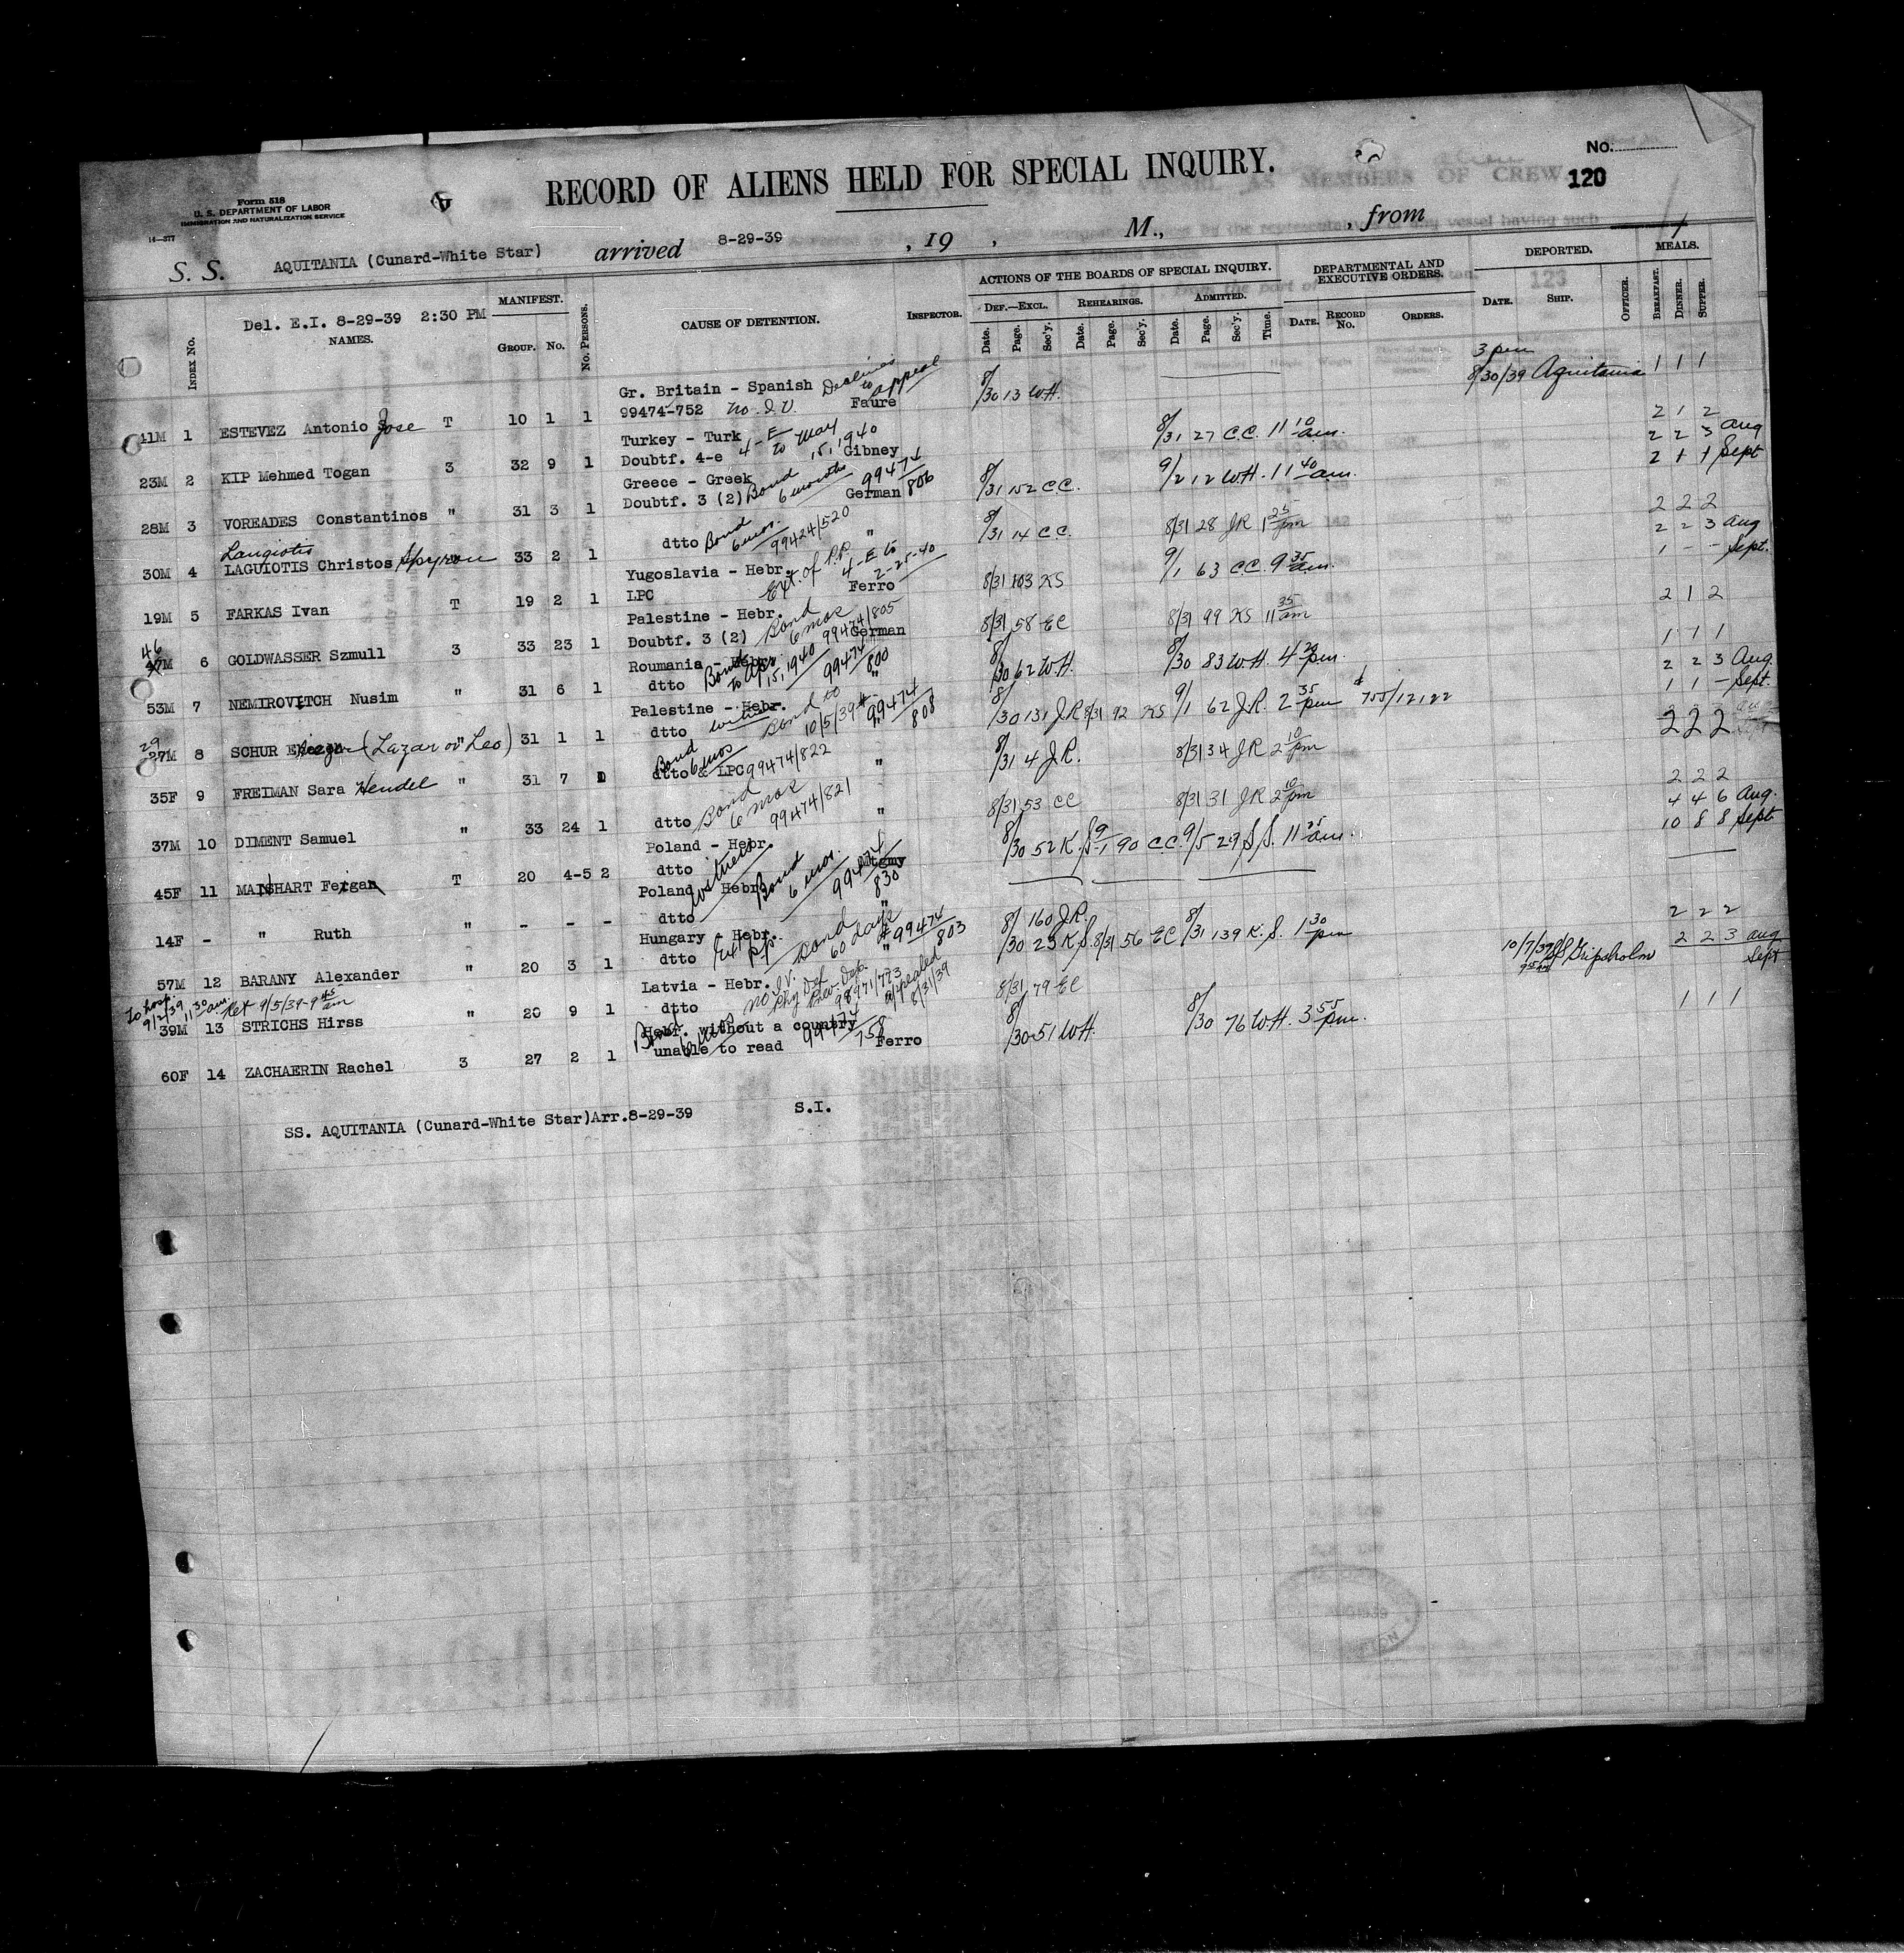 No.
120
RECORD OF ALIENS HELD FOR SPECIAL INQUIRY.
Form 518
U. S. DEPARTMENT OF LABOR
IMMIGRATION AND NATURALIZATION SERVICE
16—377
S. S. AQUITANIA (Cunard-White Star) arrived 8-29-39 , 19 , M., , from
Del. E.I. 8-29-39 2:30 PM
INDEX No. NAMES. MANIFEST. GROUP. No. No. PERSONS. CAUSE OF DETENTION. INSPECTOR.
ACTIONS OF THE BOARDS OF SPECIAL INQUIRY. DEF.—EXCL. REHEARINGS. ADMITTED.
Date. Page. Sec'y. Date. Page. Sec'y. Date. Page. Sec'y. Time.
DEPARTMENTAL AND EXECUTIVE ORDERS. DATE. RECORD No. ORDERS.
DEPORTED. DATE. SHIP. OFFICER.
MEALS. BREAKFAST. DINNER. SUPPER.
Gr. Britain - Spanish Declines to appeal
99474-752 No. I.V. Faure 8/30 13 WH. 3 pm 8/30/39 Aquitania 1 1 1
41M 1 ESTEVEZ Antonio Jose T 10 1 1
Turkey - Turk
Doubtf. 4-e 4-E to May 15, 1940 Gibney 8/31 27 C.C. 11 10 am. 2 1 2
23M 2 KIP Mehmed Togan 3 32 9 1
Greece - Greek
Doubtf. 3 (2) Bond 6 months 99474/806 German 8/31 152 C.C. 9/2 12 WH. 11 40 am. 2 2 3 Aug
2 1 1 Sept
28M 3 VOREADES Constantinos " 31 3 1
dtto Bond 6 mos. 99424/520 " 8/31 14 C.C. 8/31 28 JR 1 25 pm 2 2 2
Langiotis
30M 4 LAGUIOTIS Christos Spyron " 33 2 1
Yugoslavia - Hebr.
LPC Ext. of P.P. 4-E to 2-25-40 Ferro 8/31 103 KS 9/1 63 C.C. 9 35 am. 2 2 3 Aug
1 - - Sept.
19M 5 FARKAS Ivan T 19 2 1
Palestine - Hebr.
Doubtf. 3 (2) Bond 6 mos 99474/805 German 8/31 58 EC 8/31 99 KS 11 35 am 2 1 2
46
47M 6 GOLDWASSER Szmull 3 33 23 1
Roumania - Hebr.
dtto Bond to Apr 15, 1940 99474/800 " 8/30 62 WH. 8/30 83 WH. 4 20 pm. 1 1 1
53M 7 NEMIROVITCH Nusim " 31 6 1
Palestine - Hebr.
dtto Bond to 10/5/39 99474/808 " 8/30 131 J.R. 8/31 92 KS 9/1 62 J.R. 2 35 pm 2 2 3 Aug.
1 1 - Sept.
29
27M 8 SCHUR (Lazar or Leo) " 31 1 1
dtto & LPC Bond 6 mos 99474/822 " 8/31 4 J.R. 8/31 34 JR 2 10 pm 2 2 2
35F 9 FREIMAN Sara Hendel " 31 7 1
dtto Bond 6 mos 99474/821 " 8/31 53 CC 8/31 31 JR 2 10 pm 2 2 2
37M 10 DIMENT Samuel " 33 24 1
Poland - Hebr.
dtto Mtgmy 8/30 52 K.S. 9/1 90 C.C. 9/5 29 S.S. 11 25 am. 4 4 6 Aug.
10 8 8 Sept
45F 11 T 20 4-5 2
Poland - Hebr. Bond 6 mos. 99474/830
dtto "
14F - " Ruth " - - -
Hungary - Hebr.
dtto Ext PP Bond 60 days " 99474/803 8/30 160 J.R. 8/30 23 K.S. 8/31 56 EC 8/31 139 K.S. 1 30 pm 2 2 2
57M 12 BARANY Alexander " 20 3 1
To hosp 9/2/39 11 30 am. Ret 9/5/39-9 45 am
Latvia - Hebr.
dtto No I.V. Prev. Dep. 98971/773 appealed 8/31/39 8/31 79 EC 10/7/39 SS Gripsholm 2 2 3 Aug
Sept
39M 13 STRICHS Hirss " 20 9 1
Hebr. without a country
unable to read Bond 6 mos 99474/758 Ferro 8/30 51 WH. 8/30 76 WH. 3 55 pm. 1 1 1
60F 14 ZACHAERIN Rachel 3 27 2 1
SS. AQUITANIA (Cunard-White Star)Arr.8-29-39 S.I.